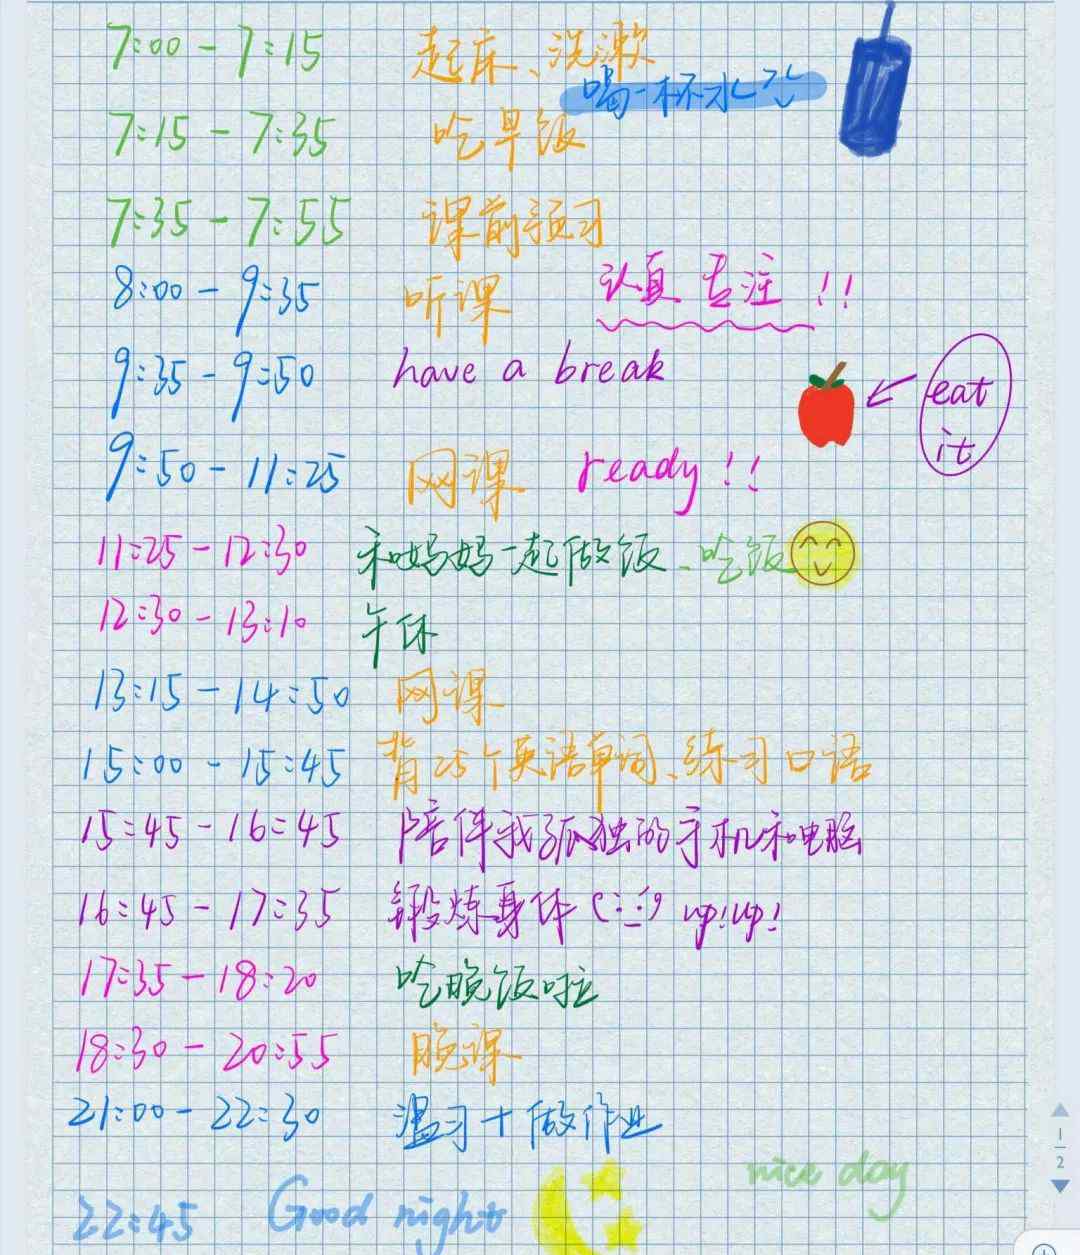 7:00 - 7:15 起床、洗漱
喝一杯水
7:15 - 7:35 吃早饭
7:35 - 7:55 课前预习
8:00 - 9:35 听课 认真专注!!
9:35 - 9:50 have a break eat
it
9:50 - 11:25 网课 ready!!
11:25 - 12:30 和妈妈一起做饭、吃饭
12:30 - 13:10 午休
13:15 - 14:50 网课
15:00 - 15:45 背25个英语单词、练习口语
15:45 - 16:45 陪伴我孤独的手机和电脑
16:45 - 17:35 锻炼身体 up!up!
17:35 - 18:20 吃晚饭啦
18:30 - 20:55 晚课
21:00 - 22:30 温习+做作业
nice day
22:45 Good night
1
2